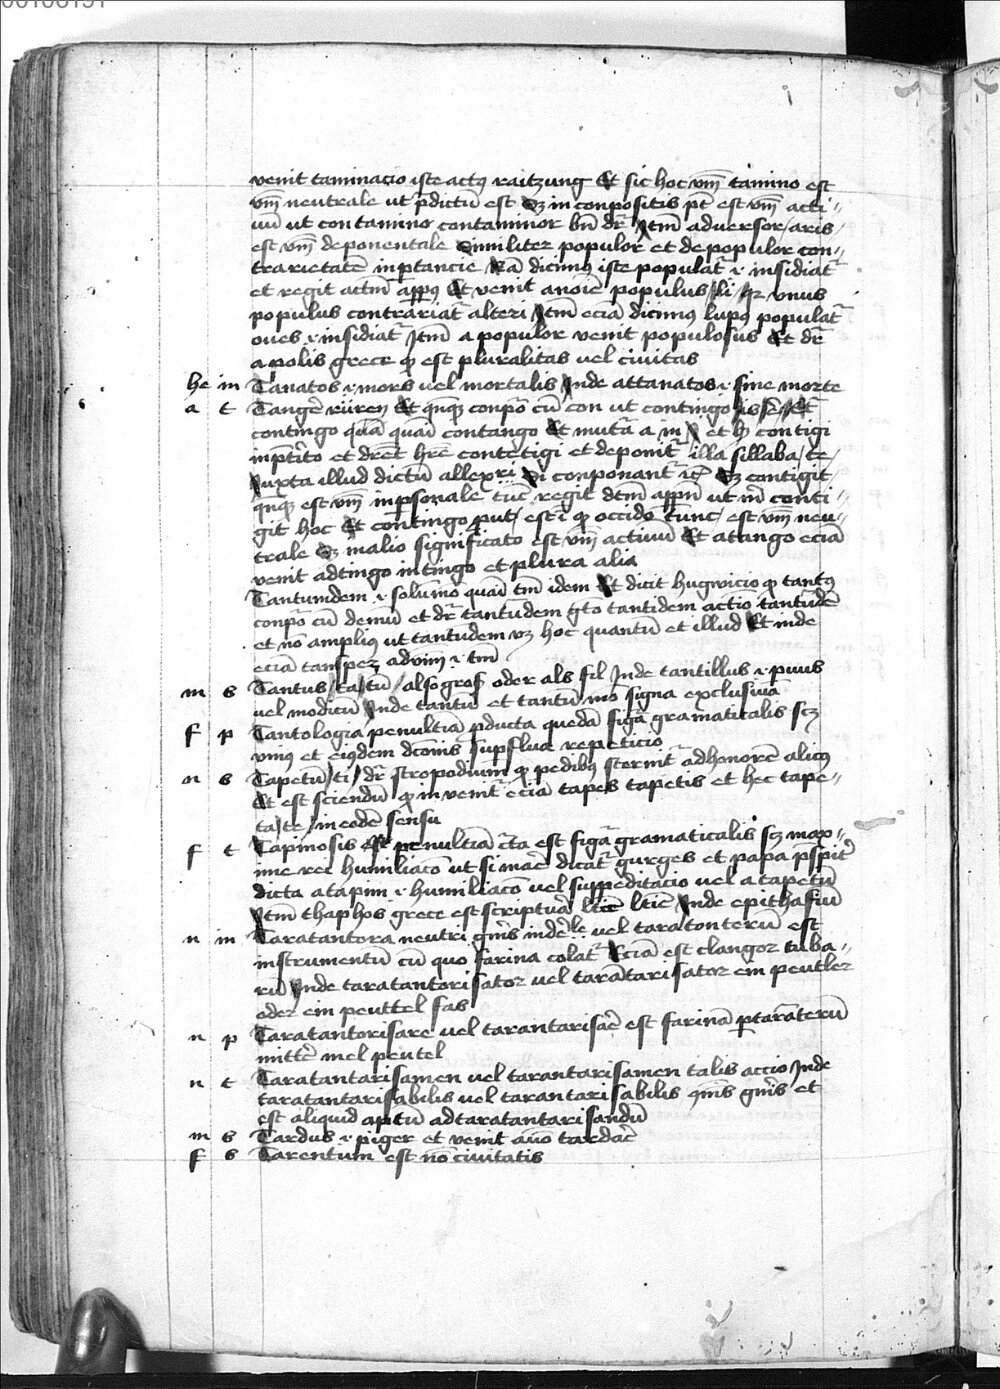 00100191
venit taminacio iste actus raitzung Et sic hoc vm̄ tamino est
vm̄ neutrale ut p̄dictū est Sz in conpositis pt̄ est vm̄ acti//
uū ut contamino contaminor bn̄ dr̄ Itm̄ adversor/aris
est vm̄ deponentale Similiter populor et depopulor con//
trarietatē inportancie Nā dicimus iste populat̄ .i. insidiat̄
et regit actm̄ Et venit populus/li qz vnus
populus contrariat̄ alteri Itm̄ eciā dicimus lupus populat̄
oues .i. insidiat̄ Itm̄ a populor venit populosus Et dr̄
a polis grece qͦ est pluralitas uel civitas
he m Tanatos .i. mors vel mortalis Inde attanatos .i. sine morte
a t Tangē rüren Et conpo cū con ut contingo
contingo quasi contango Et mutā a in i et hz contigi
in ptito et dr̄et hr̄e contetigi et deponit̄ illa sillaba/te/
Iuxta illud dictū Si conponant̄ Sz contigit
qn̄qz est vm̄ inpersonale tūc regit dtm̄ ut m̄ conti//
git hoc Et contingo put/ est qͦ occido tunc/ est vm̄ neu//
trale Sz in alio significato est vm̄ actiuū Et attango eciā
venit adtingo intingo et plura alia
Tantumdem .i. solūmo quasi tm̄ idem Et dicit hugwicio qͦ tantus
conpo cū demū et dr̄ tantūdem gto tantidem actio tantūdē
et nō amplius ut tantudem vz hoc quantū et illud Et inde
eciā tanspez advm̄ .i. tm̄
m s Tantus/ta/tū/ also gros oder als fil Inde tantillus .i. puus
vel modicū Inde tantū et tantūmo signa exclusiua
f p Tantologia penultia pducta quedā figā gramaticalis scz
vnius et eiusdem dc̄onis supflua repeticio
n s Tapetū/ti/ dr̄ stropodium qͦ pedibus sternit̄ ad honorē alicus
Et est sciendū qͦ invenit̄ eciā tapes tapetis et hec tape//
ta/te/ in eodē sensu
f t Tapinosis penultiā c̄ta est figā gramaticalis scz max//
ime rei humiliaco ut si mare dicat̄ gurges et papa
dicta a tapin .i. humiliaco vel suppeditacio vel a tapetū
Itm̄ thaphos grece est scriptura Inde epithafiū
n in Taratantora neutri gn̄is indē le vel taratonterū est
instrumentū cū quo farina colat̄ Eciā est clangor tuba//
rū Inde taratantorisator vel tarātarisator ein peutler
oder ein peuttel fas
n p Taratantorisare vel tarantarisāē est farinā p taratērū
mittē mel peutel
n t Taratantarisamen vel tarantarisamen talis accio Inde
taratantarisabilis vel tarantarisabilis om̄s gn̄is et
est aliquid aptū ad taratantarisandū
m s Tardus .i. piger et venit auo tardāē
f s Tarentum est nō civitatis